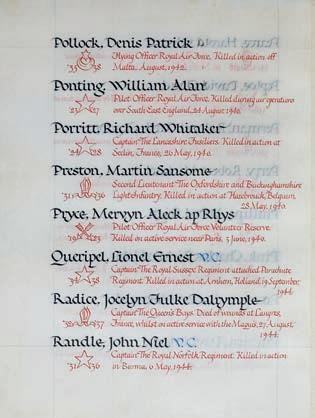 Pollock, Denis Patrick
'35 38 Flying Officer Royal Air Force. Killed in action off
Malta, August, 1942.
Ponting, William Alan
'23 '27 Pilot Officer Royal Air Force. Killed during air operations
over South East England, 24 August 1940.
Porritt, Richard Whitaker
'24 '28 Captain The Lancashire Fusiliers. Killed in action at
Seclin, France, 26 May, 1940.
Preston, Martin Sansome
'31 '36 Second Lieutenant The Oxfordshire and Buckinghamshire
Light Infantry. Killed in action at Hazebrouck, Belgium,
28 May, 1940.
Pryce, Mervyn Aleck ap Rhys
Pilot Officer Royal Air Force Volunteer Reserve.
Killed on active service near Paris, 3 June, 1940.
Queripel, Lionel Ernest V.C.
'34 '38 Captain The Royal Sussex Regiment attached Parachute
Regiment. Killed in action at Arnhem, Holland, 19 September,
1944.
Radice, Jocelyn Fulke Dalrymple
Captain The Queen's Bays. Died of wounds at
France, whilst on active service with the Maquis, 27 August,
1944.
Randle, John Niel V.C.
'31 '36 Captain The Royal Norfolk Regiment. Killed in action
in Burma, 6 May, 1944.